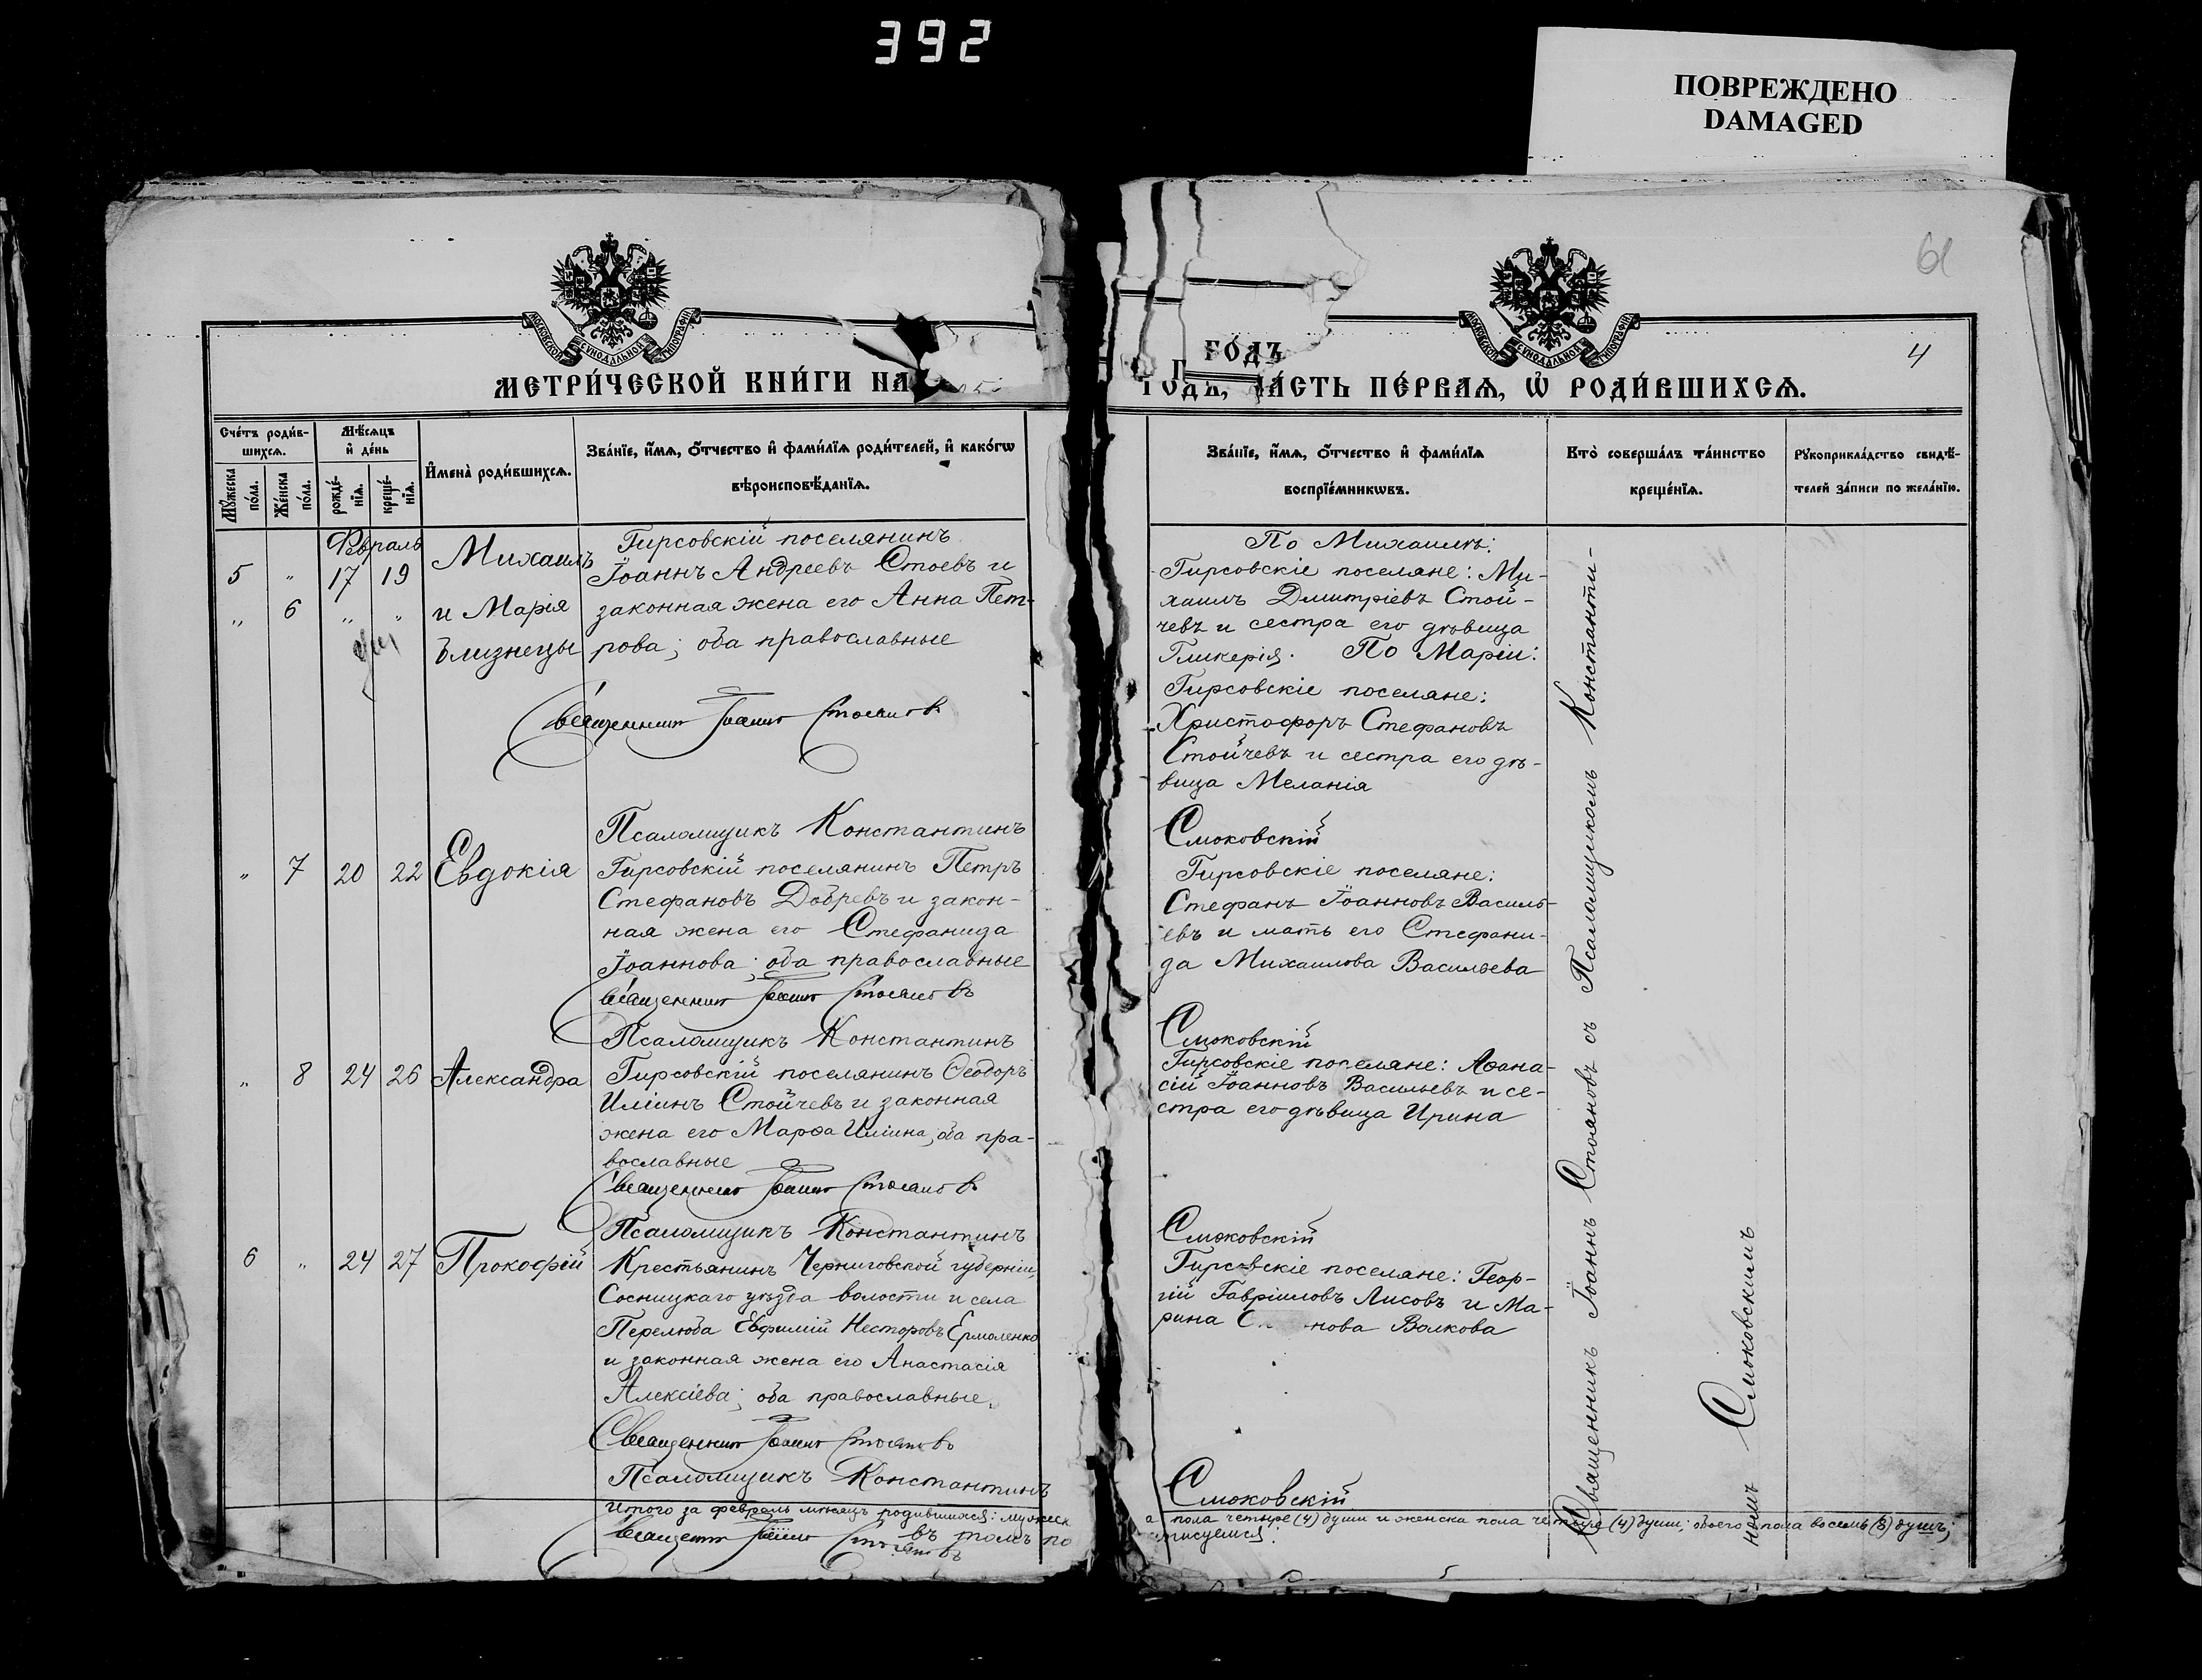 392
ПОВРЕЖДЕНО
DAMAGED
61
4
МОСКОВСКОЙ СУНОДАЛЬНОЙ ТИПОГРАФІИ
МОСКОВСКОЙ СУНОДАЛЬНОЙ ТИПОГРАФІИ
ГО́ДЪ
МЕТРИ́ЧЕСКОЙ КНИ́ГИ НА
ГОДЪ, ЧА́СТЬ ПЕ́РВАѦ, Ѡ҆ РОДИ́ВШИХСѦ.
Сче́тъ роди́в-
шихсѧ.
Мѣ́сѧцъ
и҆ де́нь
Мꙋ́жеска
по́ла.
Же́нска
по́ла.
рожде́-
нїѧ.
креще́-
нїѧ.
И҆мена̀ роди́вшихсѧ.
Зва́нїе, и҆́мѧ, ѻ҆́тчество и҆ фами́лїѧ роди́телей, и҆ како́гѡ
вѣроисповѣ́данїѧ.
Зва́нїе, и҆́мѧ, ѻ҆́тчество и҆ фами́лїѧ
воспрїе́мникѡвъ.
Кто̀ соверша́лъ та́инство
креще́нїѧ.
Рꙋкоприкла́дство свидѣ́-
телей за́писи по жела́нїю.
Февраль
5 " 17 19 Михаилъ
" 6 " " и Марія
близнецы
Гирсовскій поселянинъ
Іоаннъ Андреевъ Стоевъ и
законная жена его Анна Пет-
рова; оба православные
Священникъ Іоаннъ Стояновъ
По Михаилѣ:
Гирсовскіе поселяне: Ми-
хаилъ Димитріевъ Стой-
чевъ и сестра его дѣвица
Гликерія. По Маріи:
Гирсовскіе поселяне:
Христофоръ Стефановъ
Стойчевъ и сестра его дѣ-
вица Меланія
Псаломщикъ Константинъ
Смоковскій
" 7 20 22 Евдокія
Гирсовскій поселянинъ Петръ
Стефановъ Добревъ и закон-
ная жена его Стефанида
Іоаннова; оба православные
Священникъ Іоаннъ Стояновъ
Гирсовскіе поселяне:
Стефанъ Іоанновъ Василь-
евъ и мать его Стефани-
да Михаилова Васильева
Псаломщикъ Константинъ
Смоковскій
" 8 24 26 Александра
Гирсовскій поселянинъ Ѳеодоръ
Иліинъ Стойчевъ и законная
жена его Марѳа Иліина; оба пра-
вославные
Священникъ Іоаннъ Стояновъ
Гирсовскіе поселяне: Аѳана-
сій Іоанновъ Васильевъ и се-
стра его дѣвица Ирина
Псаломщикъ Константинъ
Смоковскій
6 " 24 27 Прокофій
Крестьянинъ Черниговской губерніи,
Сосницкаго уѣзда волости и села
Перелюба Евфимій Несторовъ Ермоленко
и законная жена его Анастасія
Алексіева; оба православные.
Священникъ Іоаннъ Стояновъ
Гирсовскіе поселяне: Геор-
гій Гавріиловъ Лисовъ и Ма-
рина нова Волкова
Псаломщикъ Константинъ
Смоковскій
Итого за февраль мѣсяцъ родившихся: мужеск
а пола четыре (4) души и женска пола четыре (4) души; обоего пола восемь (8) душъ;
Священникъ Іоаннъ Стояновъ
въ томъ по
дписуемся:
Священникъ Іоаннъ Стояновъ съ Псаломщикомъ Константи-
номъ Смоковскимъ